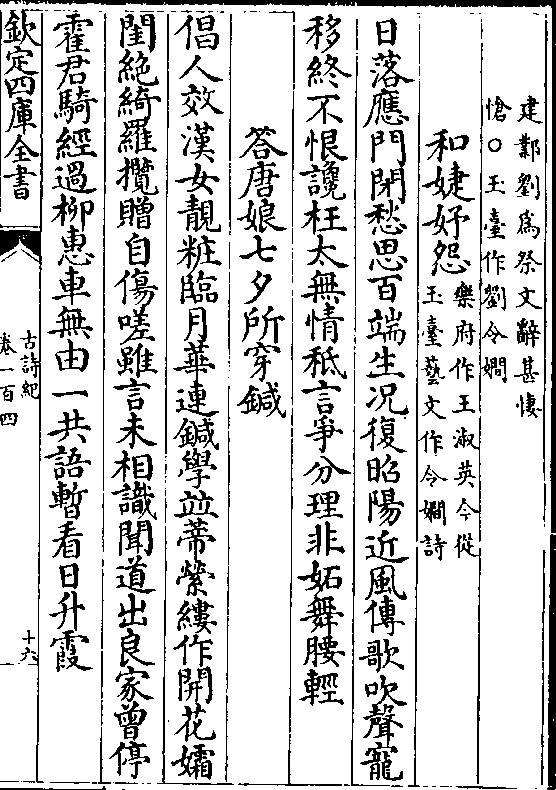 建鄴劉為祭文辭甚悽
愴○玉臺作劉令嫺
和婕妤怨
樂府作王淑英今從
玉臺藝文作令嫺詩
日落應門閉愁思百端生况復昭陽近風傳歌吹聲寵
移終不恨讒枉太無情秪言爭分理非妬舞腰輕
答唐娘七夕所穿鍼
倡人效漢女靚粧臨月華連鍼學竝蒂縈縷作開花孀
閨絶綺羅攬贈自傷嗟雖言未相識聞道出良家曾停
霍君騎經過柳惠車無由一共語暫看日升霞
欽定四庫全書
古詩紀
卷一百四
十六